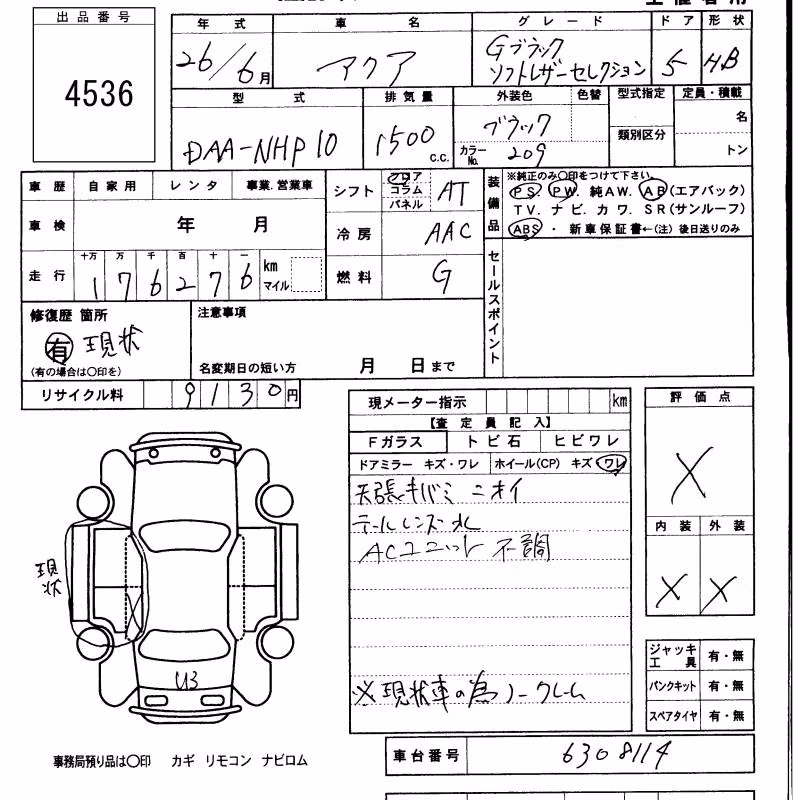 出品番号
4536
年式 車名 グレード ドア 形状
26/6月 アクア Gブラック ソフトレザーセレクション 5 HB
型式 排気量 外装色 色替 型式指定 定員・積載
DAA-NHP10 1500 c.c. ブラック カラーNo. 209 類別区分 名 トン
車歴 自家用 レンタ 事業.営業車
車検 年 月
走行 十万 万 千 百 十 一 km マイル
176276
シフト フロア コラム パネル AT
冷房 AAC
燃料 G
装備品
※純正のみ〇印をつけて下さい
PS. PW. 純AW. AB(エアバック)
TV. ナビ. カワ. SR(サンルーフ)
ABS ・ 新車保証書←(注)後日送りのみ
セールスポイント
修復歴 箇所
有 現状
(有の場合は〇印を)
注意事項
名変期日の短い方 月 日まで
リサイクル料 9130円
現メーター指示 km
【査定員記入】
Fガラス トビ石 ヒビワレ
ドアミラー キズ・ワレ ホイール(CP) キズ ワレ
天張キバミ ニオイ
テールレンズ水
ACユニット 不調
※現状車の為ノークレーム
評価点
X
内装 外装
X X
現状
U3
ジャッキ工具 有・無
パンクキット 有・無
スペアタイヤ 有・無
事務局預り品は〇印 カギ リモコン ナビロム
車台番号 6308114